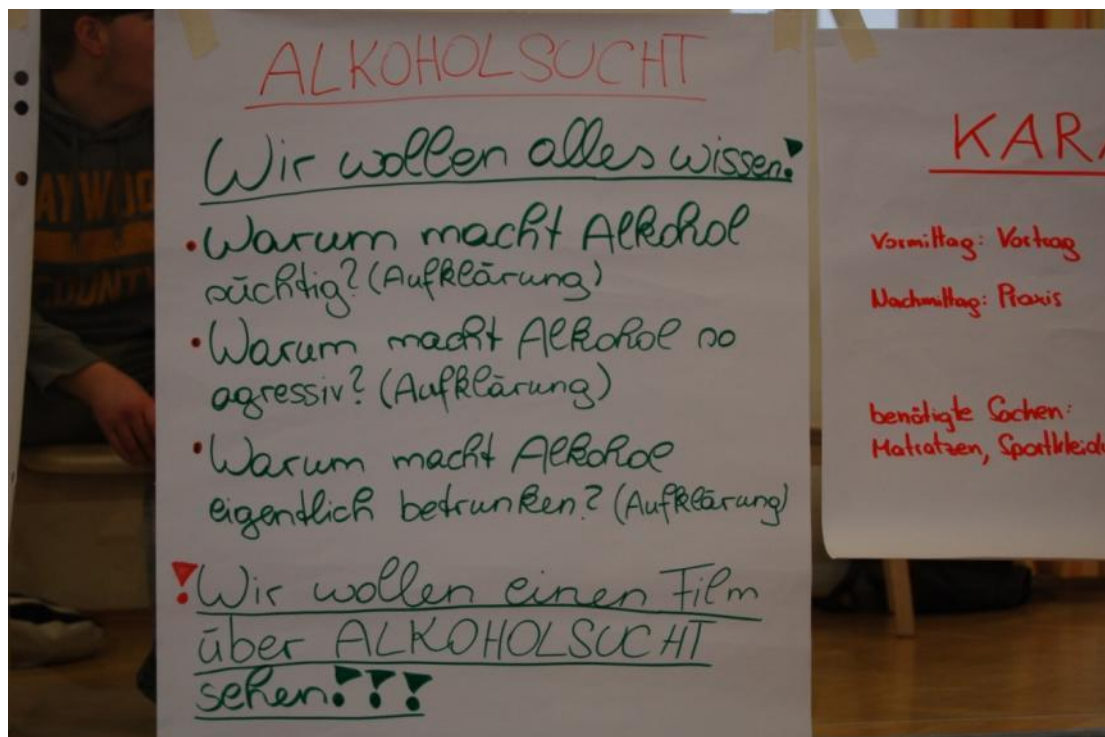 ALKOHOLSUCHT
Wir wollen alles wissen!
• Warum macht Alkohol
süchtig? (Aufklärung)
• Warum macht Alkohol so
agressiv? (Aufklärung)
• Warum macht Alkohol
eigentlich betrunken? (Aufklärung)
! Wir wollen einen Film
über ALKOHOLSUCHT
sehen!!!
KARA
Vormittag: Vortrag
Nachmittag: Praxis
benötigte Sachen:
Matratzen, Sportkleid
COUNTY